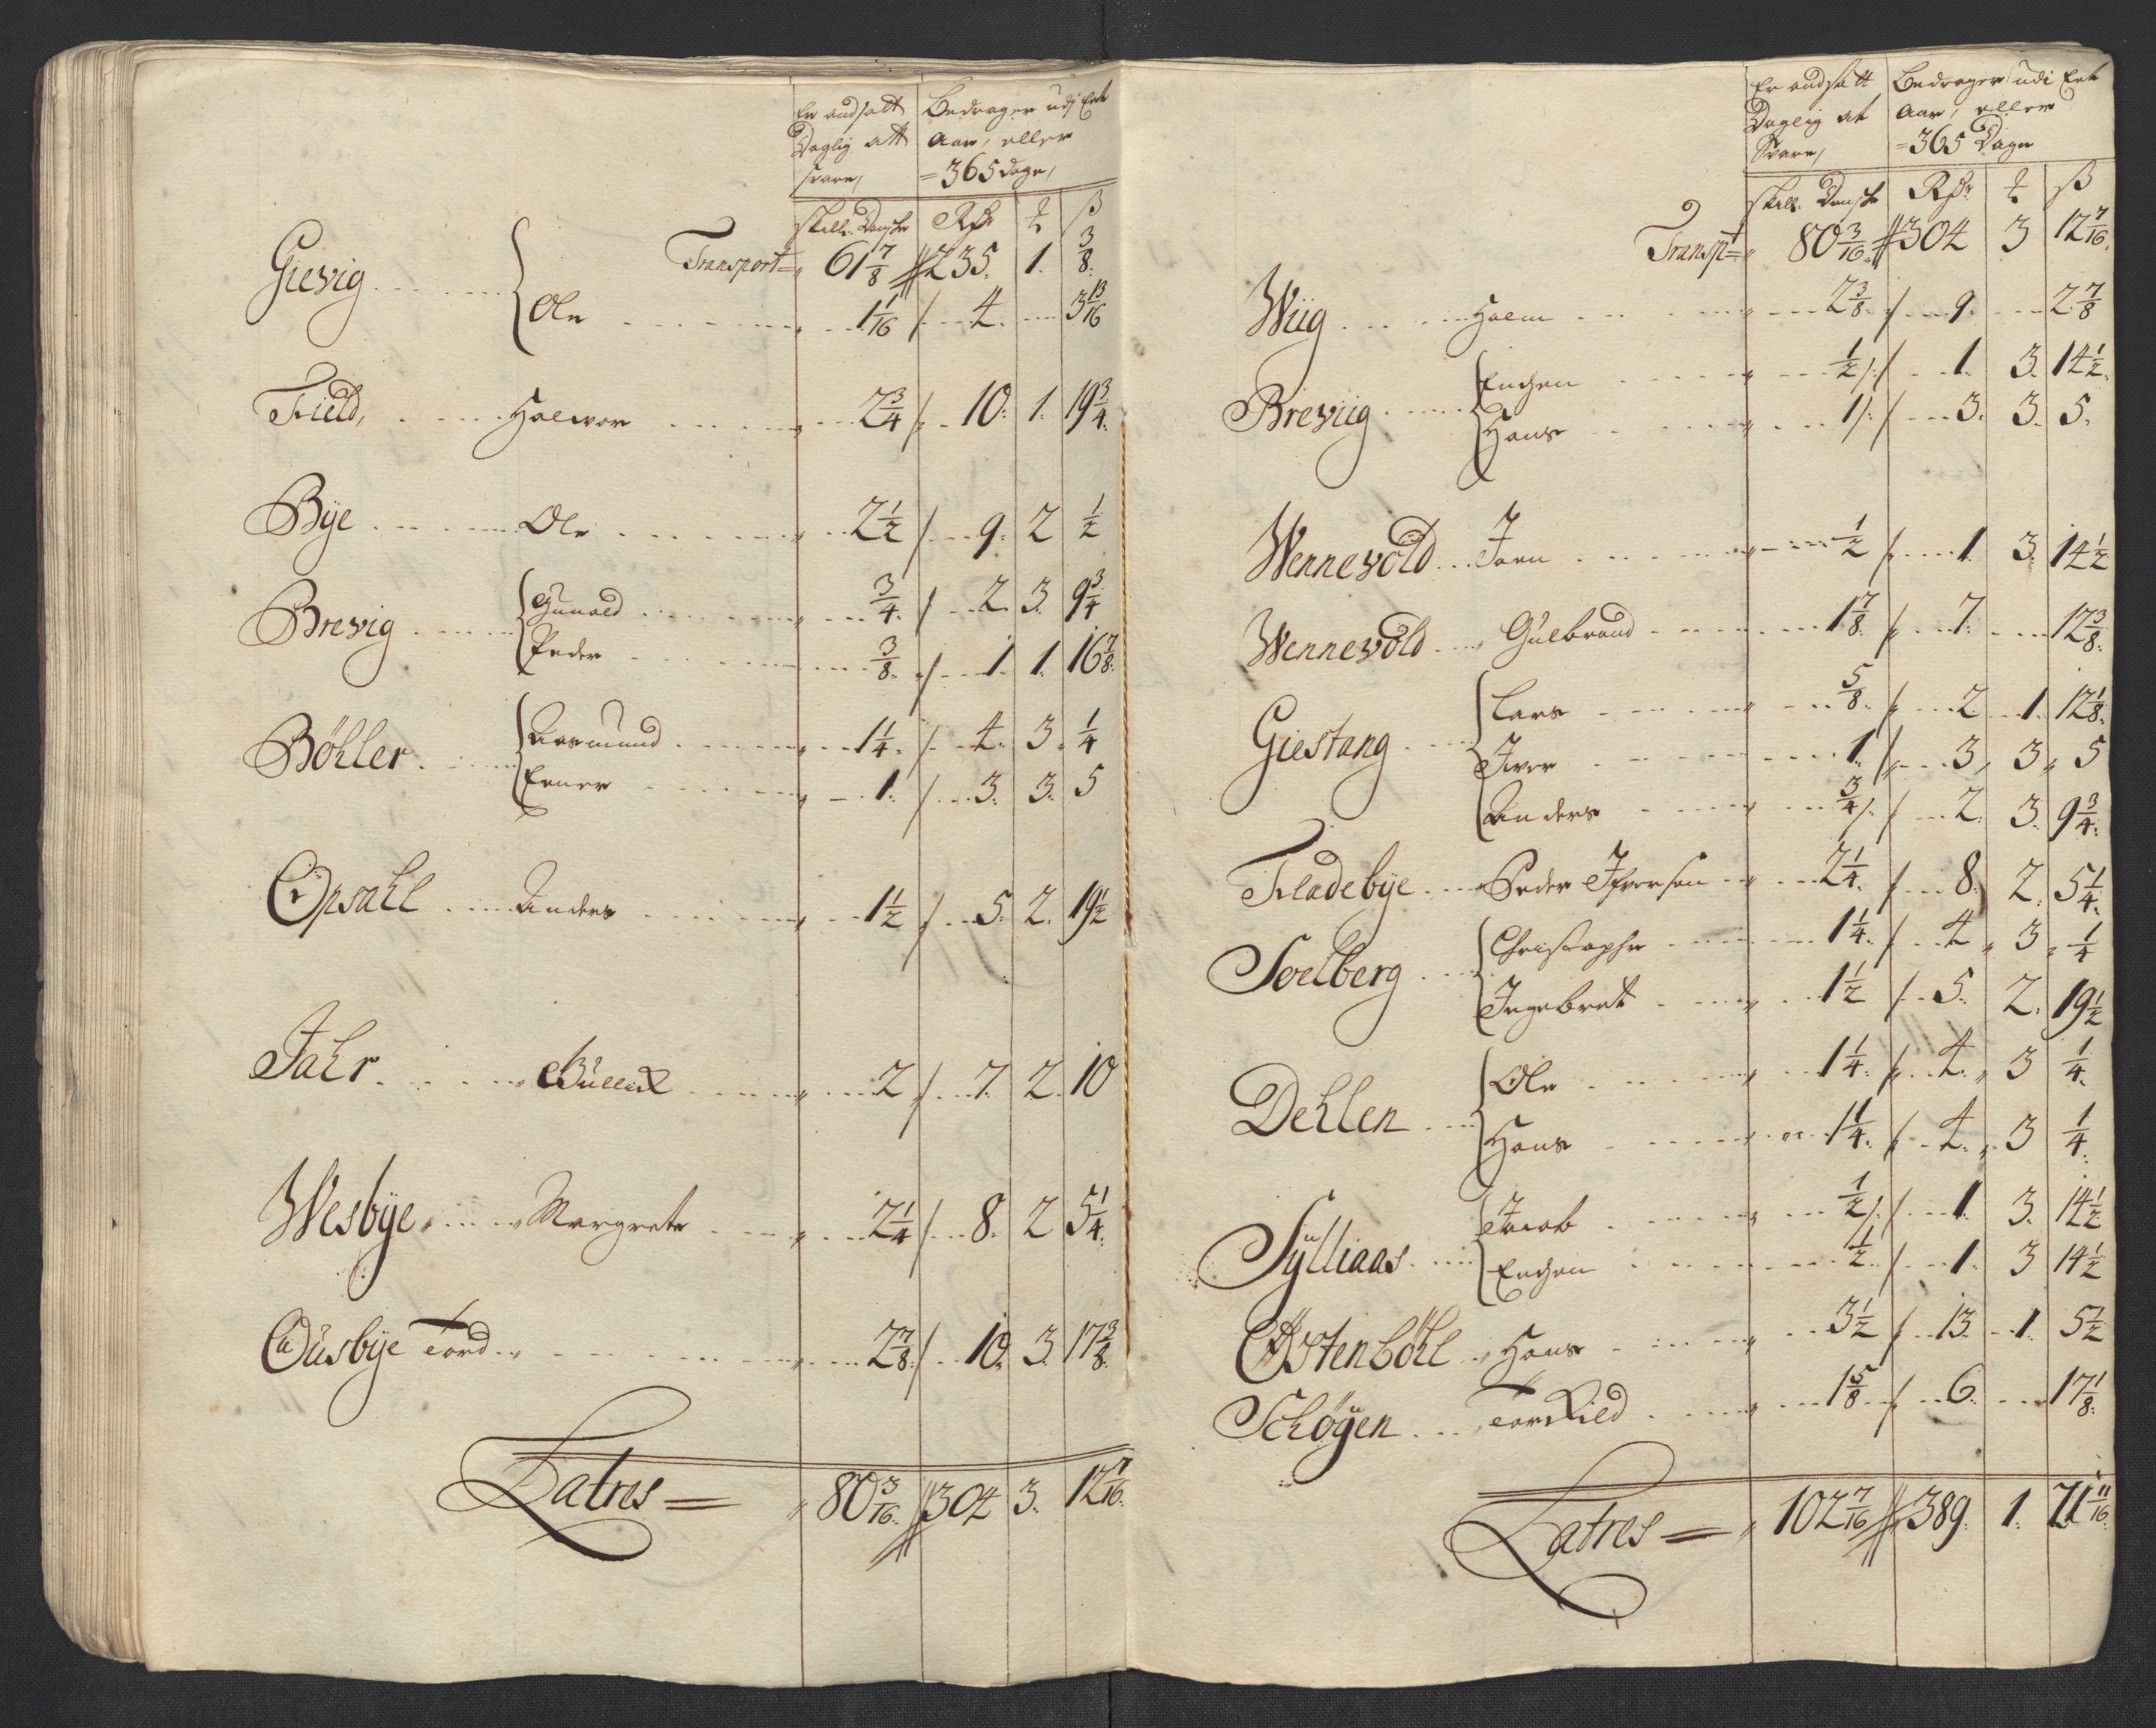 Er andsatt Daglig att svare, | Bedrager udj Eet Aar, eller =365 dage,
skell: Danske | Rdr | ℔ | ß
Transport= 61 7/8 // 235. 1. 3/8.
Gievig Ole 1 1/16 / 4. 3 13/16
Field, Halvor 2 3/4 / 10: 1. 19 3/4.
Bÿe Ole 2 1/2 / 9: 2 1/2
Brevig Gunald 3/4. / 2. 3. 9 3/4
Peder 3/8. / 1. 1. 16 7/8.
Böhler Aasmund 1 1/4. / 4. 3. 1/4
Ener 1. / 3. 3. 5
Opsahl Anders 1 1/2 / 5. 2. 19 1/2
Fahr Gullich 2 / 7. 2. 10
Wesbÿe Margrete 2 1/4 / 8. 2 5 1/4.
Ousbÿe Tord 2 7/8. / 10. 3. 17 3/8.
Latres = 80 3/16. // 304 3. 12 7/16.
Er andsatt Daglig at Svare, | Bedrager udi Eet Aar, eller =365 Dage
skell. Danske | Rdr. | ℔ | ß
Transpt= 80 3/16. // 304 3 12 7/16.
Wiig Halm 2 3/8. / 9. 2 7/8
Breviig Engen 1/2 / 1. 3. 14 1/2.
Hans 1 / 3. 3. 5.
Wennevold Joen 1/2 / 1. 3. 14 1/2
Wennevold Gulbrand 1 7/8. / 7. 12 3/8.
Giestang Lars 5/8. / 2 1. 12 1/8.
Iver 1. / 3, 3, 5
Anders 3/4 / 2. 3. 9 3/4.
Fladebÿe Peder Iffversen 2 1/4. / 8. 2. 5 1/4.
Soelberg Christopher 1 1/4. / 4 3, 1/4
Ingebret 1 1/2 / 5. 2. 19 1/2
Dehlen Ole 1 1/4. / 4. 3 1/4.
Hans 1 1/4. / 4. 3 1/4.
Sÿlliaas Jacob 1/2 / 1. 3. 14 1/2
Engen 1/2. / 1. 3 14 1/2
Østenböhl Hans 3 1/2 / 13. 1. 5 1/2
Schøÿen Torkild 1 5/8. / 6. 17 1/8.
Latres = 102 7/16 // 389. 1. 21 11/16.